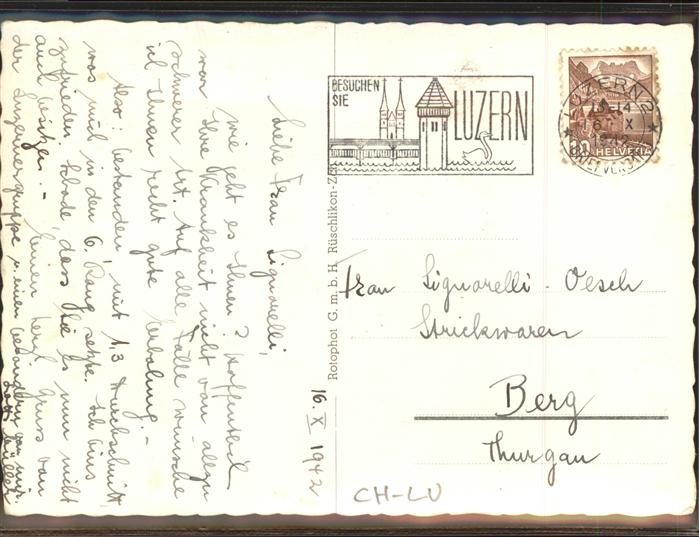 16. X 1942
Liebe Frau Signorelli,
wie geht es Ihnen? Hoffentlich
war Ihre Krankheit nicht von allzu
schwerer Art. Auf alle Fälle wünsche
ich Ihnen recht gute Erholung. -
Also: bestanden mit 1,3 Durchschnitt,
was mich in den 6. Rang setzte. Ich bins
zufrieden. Schade, dass Sie es nun nicht
auch besitzen. - Einen herzl. Gruss von
der Luzernergruppe u. einen besondern von mir.
BESUCHEN
SIE
LUZERN
LUZERN 2
HELVETIA
Rotophot G.m.b.H. Rüschlikon-Z
Frau Signorelli-Oesch
Strickwaren
Berg
Thurgau
CH-LU